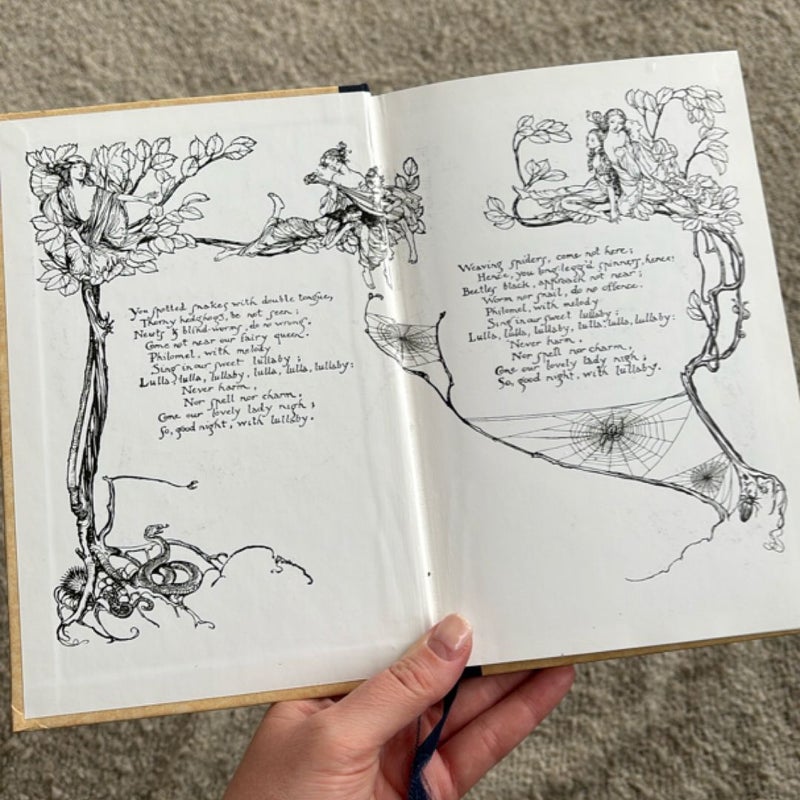 You spotted snakes with double tongue,
Thorny hedgehogs, be not seen;
Newts & blind-worms, do no wrong.
Come not near our fairy queen.
Philomel, with melody
Sing in our sweet lullaby;
Lulla, lulla, lullaby, lulla, lulla, lullaby:
Never harm,
Nor spell nor charm,
Come our lovely lady nigh;
So, good night, with lullaby.
Weaving spiders, come not here;
Hence, you long-legg'd spinners, hence!
Beetles black, approach not near;
Worm nor snail, do no offence.
Philomel, with melody
Sing in our sweet lullaby;
Lulla, lulla, lullaby, lulla, lulla, lullaby:
Never harm,
Nor spell nor charm,
Come our lovely lady nigh;
So, good night, with lullaby.